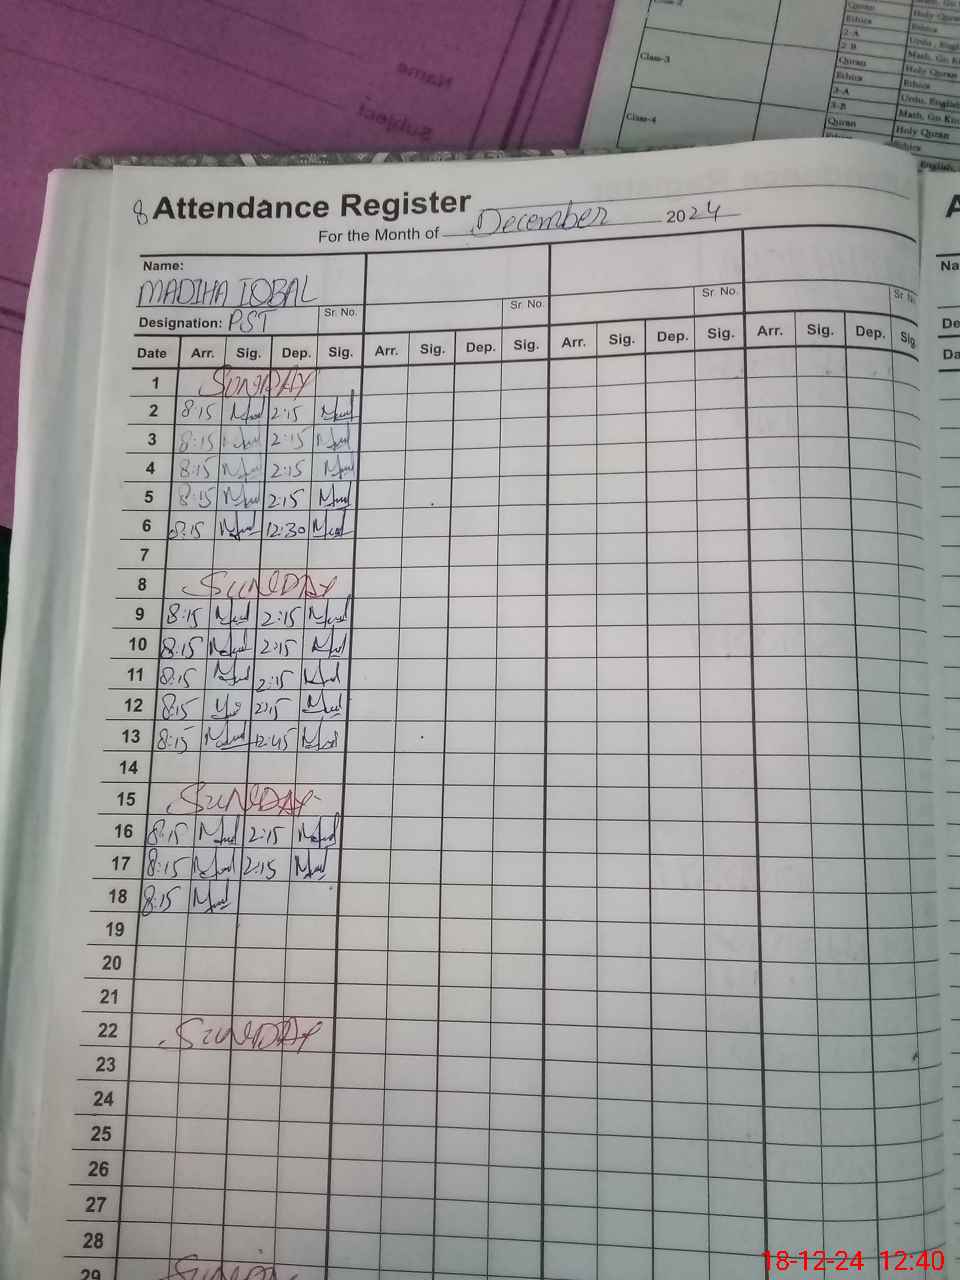 Name
Subject
Class-2
Quran
Ethics
2-A
2-B
Class-3
Quran
Ethics
3-A
3-B
Class-4
Quran
Holy Quran
Ethics
Urdu, English
Holy Quran
Ethics
Urdu, English
Holy Quran
8 Attendance Register
For the Month of December 2024
Name:
MADIHA IQBAL
Sr. No. Sr. No. Sr. No.
Designation: PST
Date Arr. Sig. Dep. Sig. Arr. Sig. Dep. Sig. Arr. Sig. Dep. Sig. Arr. Sig. Dep. Sig.
1 SUNDAY
2 8:15 2:15
3 8:15 2:15
4 8:15 2:15
5 8:15 2:15
6 8:15 12:30
7
8 SUNDAY
9 8:15 2:15
10 8:15 2:15
11 8:15 2:15
12 8:15 2:15
13 8:15 12:45
14
15 SUNDAY
16 8:15 2:15
17 8:15 2:15
18 8:15
19
20
21
22 SUNDAY
23
24
25
26
27
28
29 SUNDAY
18-12-24 12:40